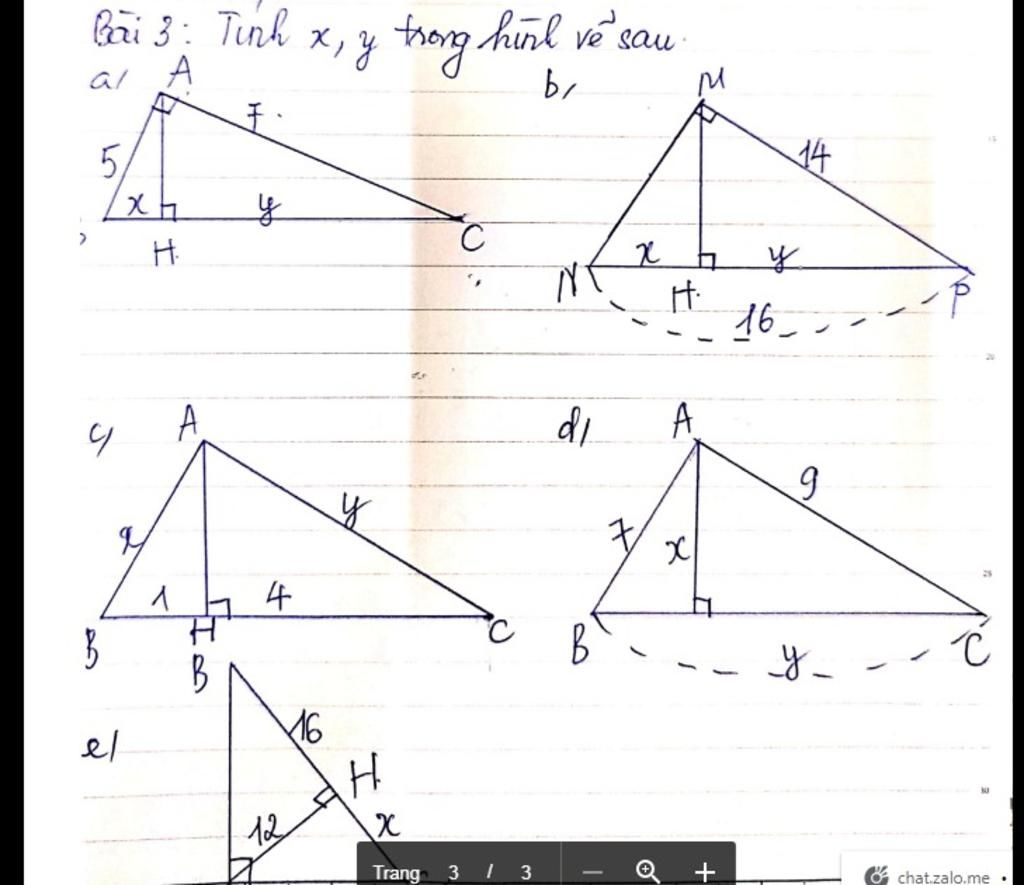 Bài 3: Tính x, y trong hình vẽ sau.
a/ A
b, M
5 7.
x y
H. C
14
x y
N H. P
16
c, A
d, A
x y
1 4
B H C
7 x 9
B C
y
e/ B
16
H
12 x
Trang 3 / 3 — +
chat.zalo.me
15
20
25
30